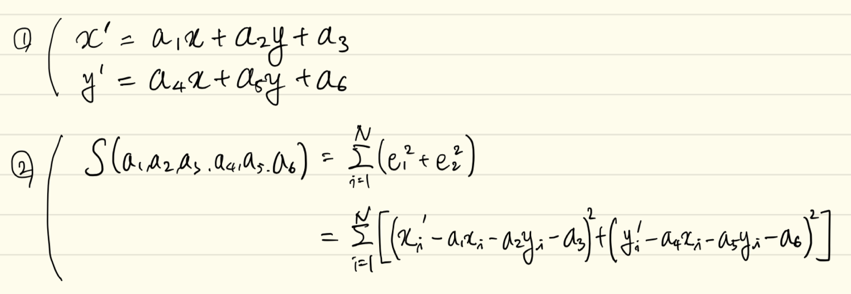 ① ( x′ = a₁x + a₂y + a₃
y′ = a₄x + a₅y + a₆
② ( S(a₁,a₂,a₃.a₄,a₅.a₆) = ∑_{i=1}^{N} (e₁² + e₂²)
= ∑_{i=1}^{N} [(xᵢ′ - a₁xᵢ - a₂yᵢ - a₃)² + (yᵢ′ - a₄xᵢ - a₅yᵢ - a₆)²]